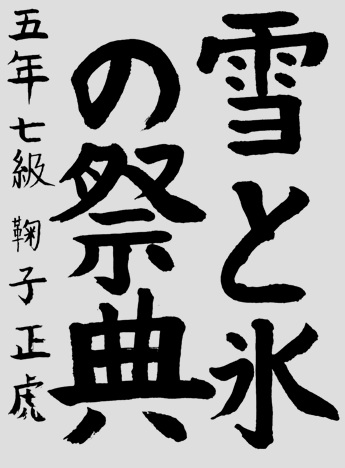 雪と氷
の祭典
五年七級 鞠子正虎